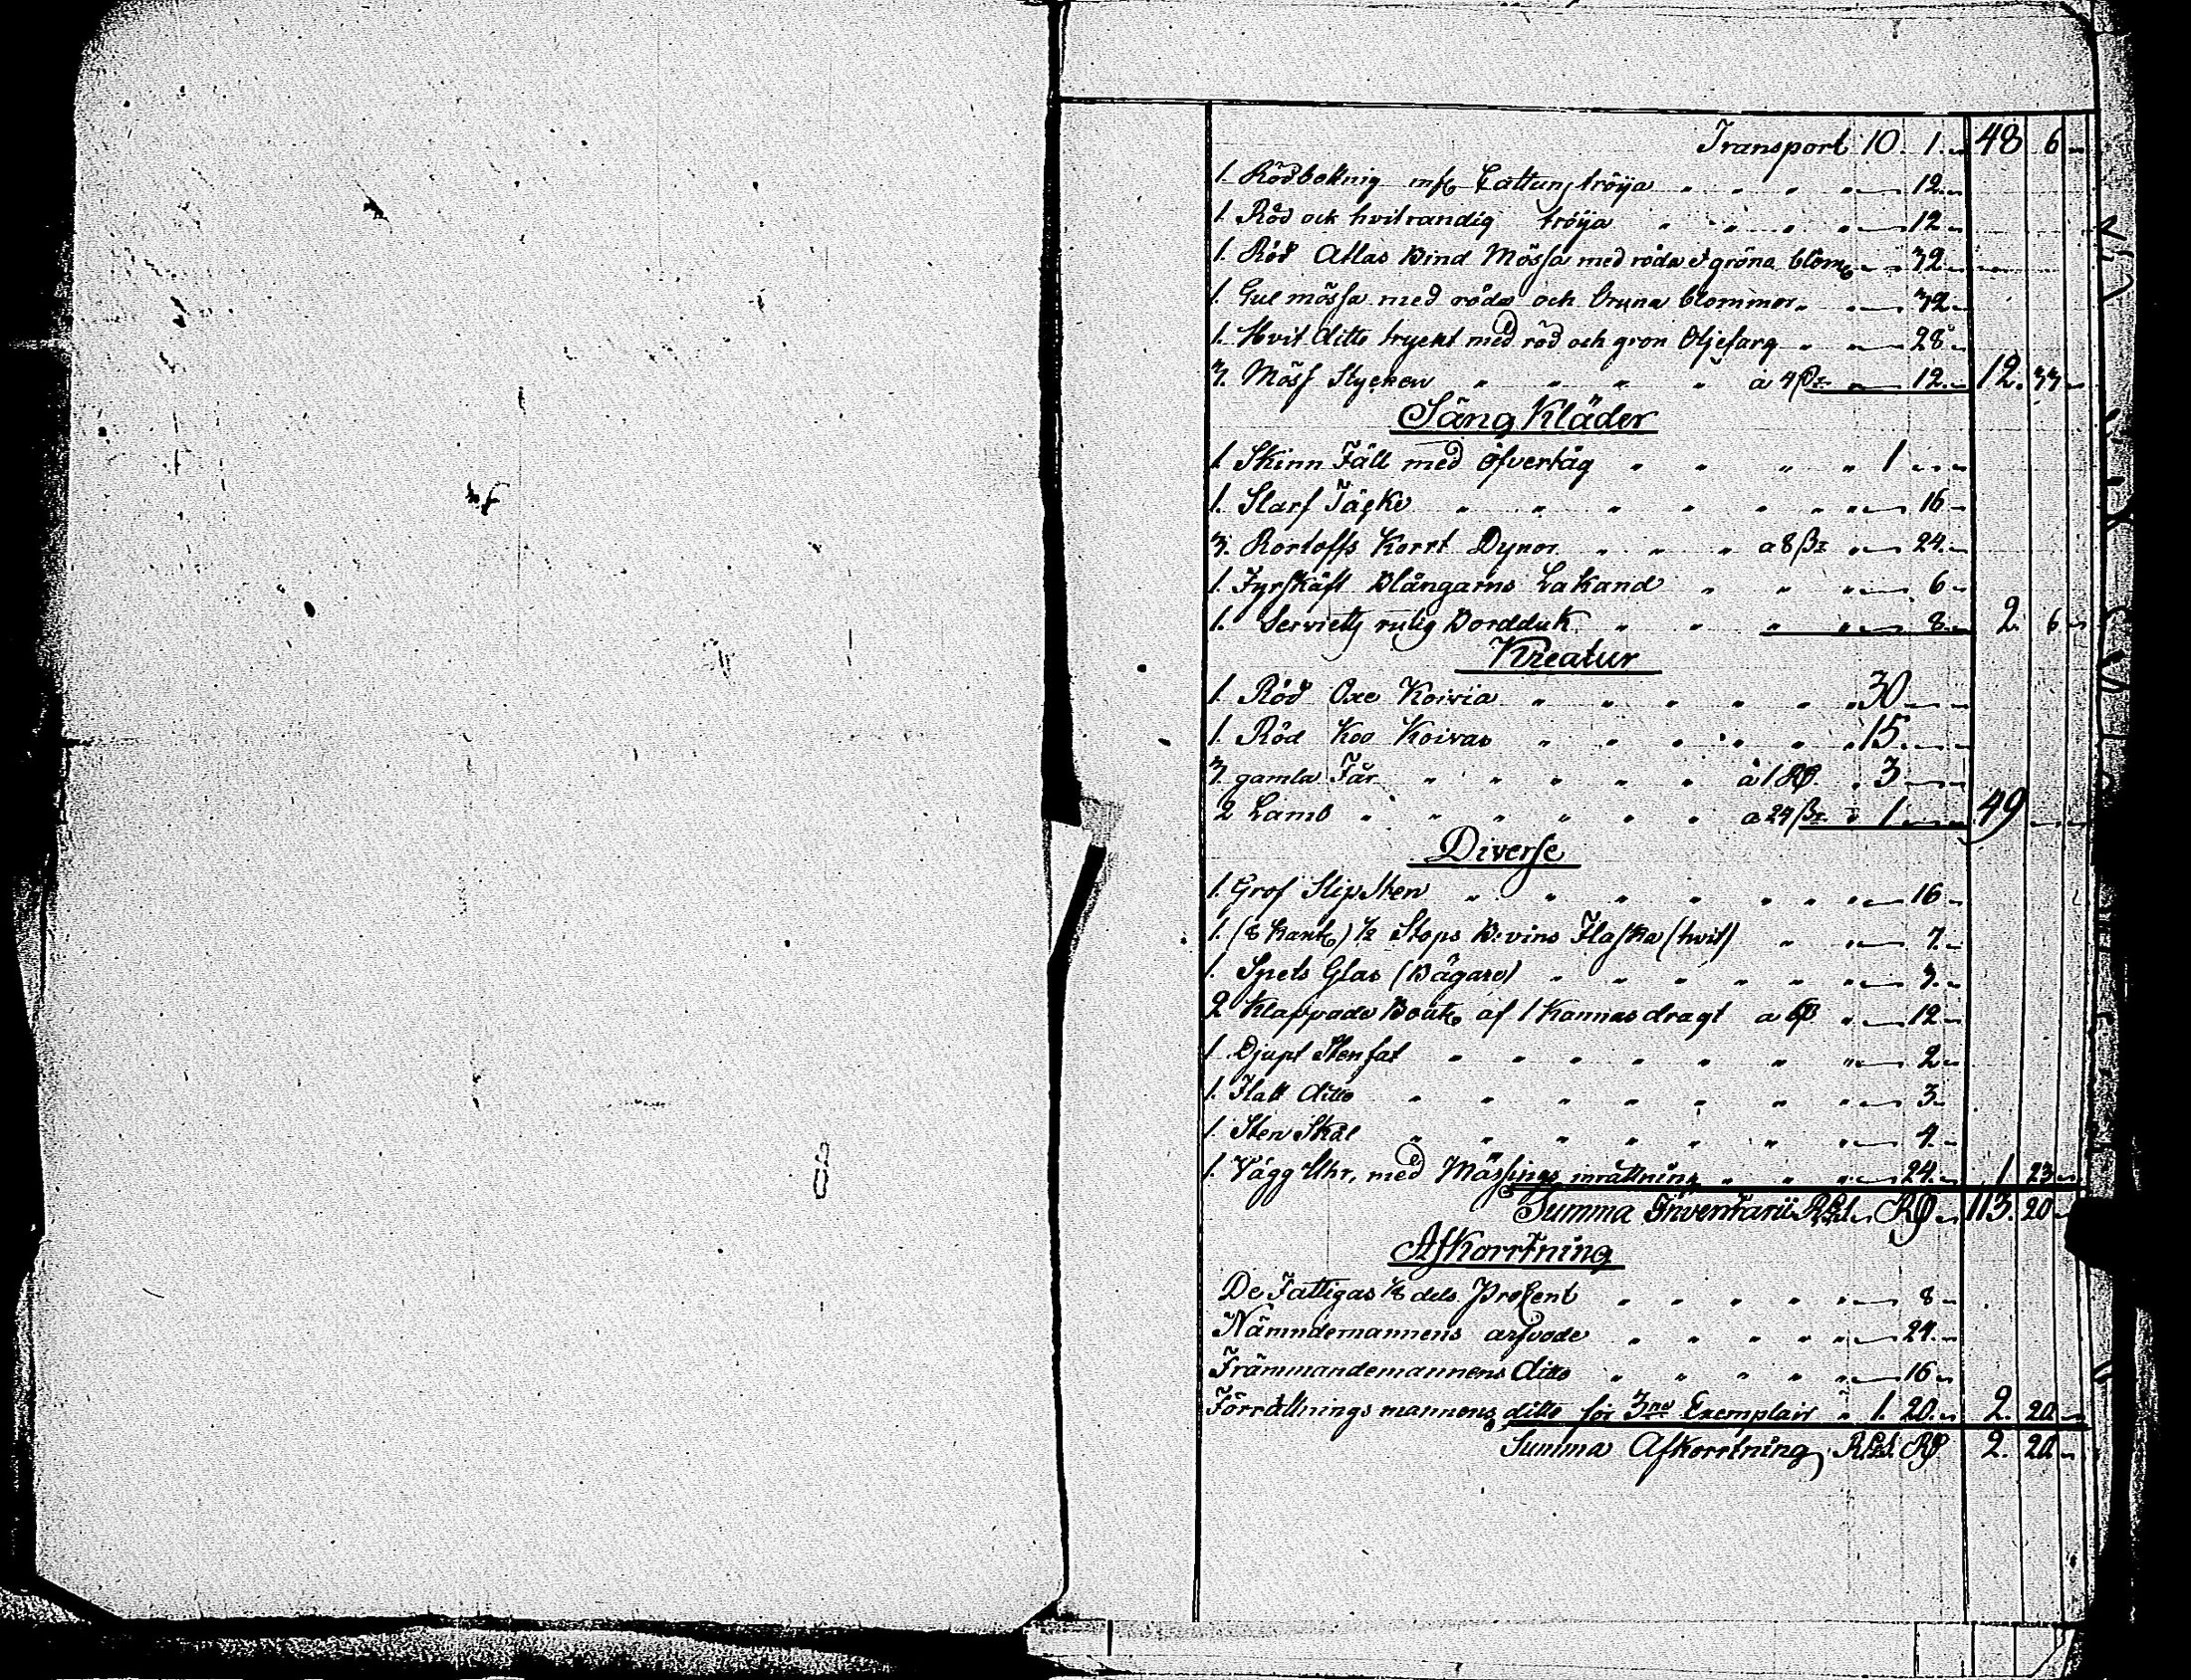 Transport 10. 1. 48 6
1. Rödbottnig Cattuns tröija 12.
1. Röd och hvitrandig tröija 12.
1. Röd Atlas Bind Mössa med röda & gröna blom 32.
1. Gul mössa med röda och bruna blommor 32.
1. Hvit ditto tryckt med röd och grön Oljefärg 28.
3. Möss Stycken a 4 12. 12. 33
Säng Kläder
1 Skinn Fäll med öfvertåg 1
1. Slarf Täcke 16
3. Bortoffs Korrt Dynor a 8 24.
1. Fyrskäft Blångarns Lakand 6
1. Serviett rutig Bordduk 8. 2. 6.
Kreatur
1 Röd Oxe Koivia 30
1. Röd Koo Koivas 15.
3. gamla Får a 1 3
2 Lamb a 24 1 49
Diverse
1. Grof Slip Sten 16
1. (8 kant) 1/2 Stops B:vins Flaska (hvit) 7.
1. Spets Glas (Bägare) 3.
2 Klappade af 1 Kannas dragt a 6 12
1 Djupt Stenfat 2
1. Flatt ditto 3
1. Sten Skål 4.
1. Vägg Uhr, med Mässings inrättning 24. 1 23
Summa Inventarii 113. 20
Afkorrtning
De Fattigas 1/8 dels Procent 8
Nämndemannens arfvode 24.
Främmandemannens ditto 16
Förrättnings mannens ditto för 3ne Exemplair 1. 20. 2. 20
Summa Afkorrtning 2. 20